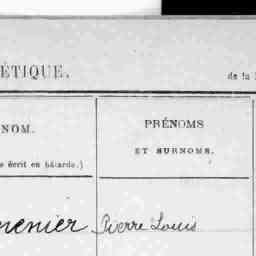 ÉTIQUE.
de la
NOM.
PRÉNOMS
ET SURNOMS.
écrit en bâtarde.)
Pierre Louis